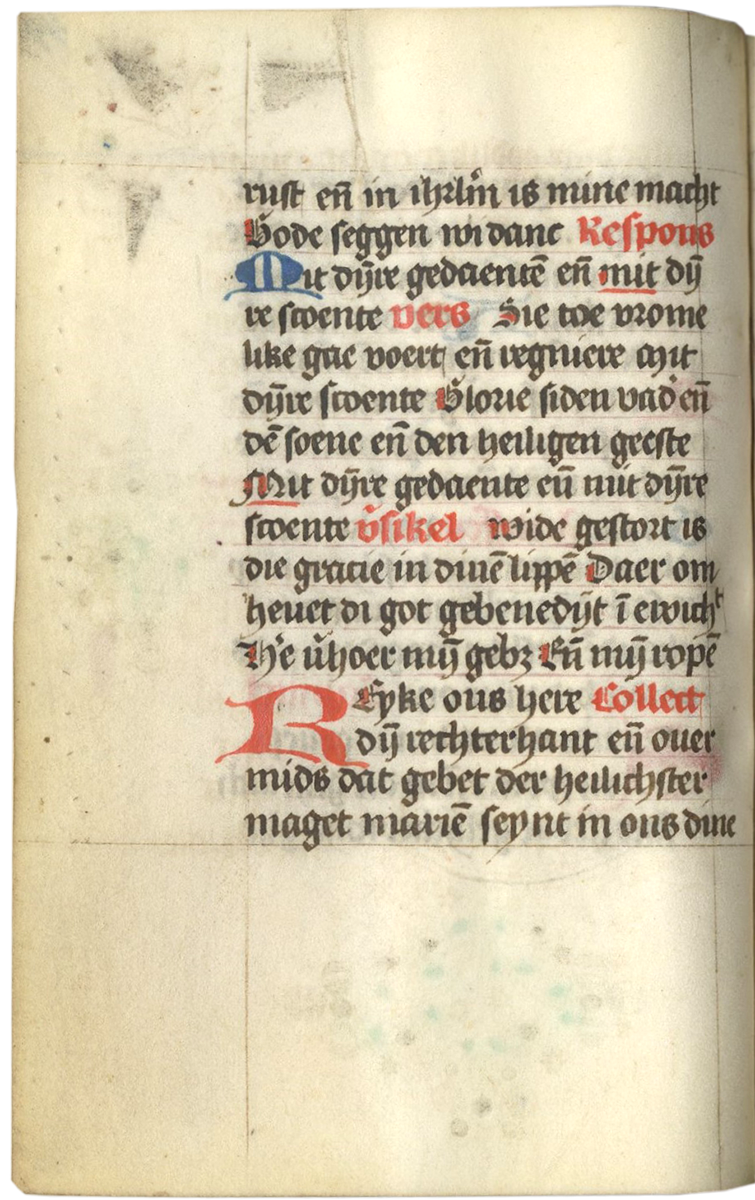 rust en̄ in ihrl̄m is mine macht
Gode seggen wi danc Respons
Mit dÿre gedaentē en̄ mit dÿ
re scoente vers Sie toe vrome
like gae voert en̄ regniere mit
dÿre scoente Glorie si den vad' en̄
dē soene en̄ den heiligen geeste
Mit dÿre gedaente en̄ mit dÿre
scoente v̓sikel wide gestort is
die gracie in dinē lippē Daer om
heuet di got gebenedÿt ī ewichᵗ
H'e v̓hoer mÿ̄ gebꝫ En̄ mÿ̄ ropē
REyke ons here Collect
dÿ̄ rechterhant en̄ ouer
mids dat gebet der heilichster
maget mariē seynt in ons dine